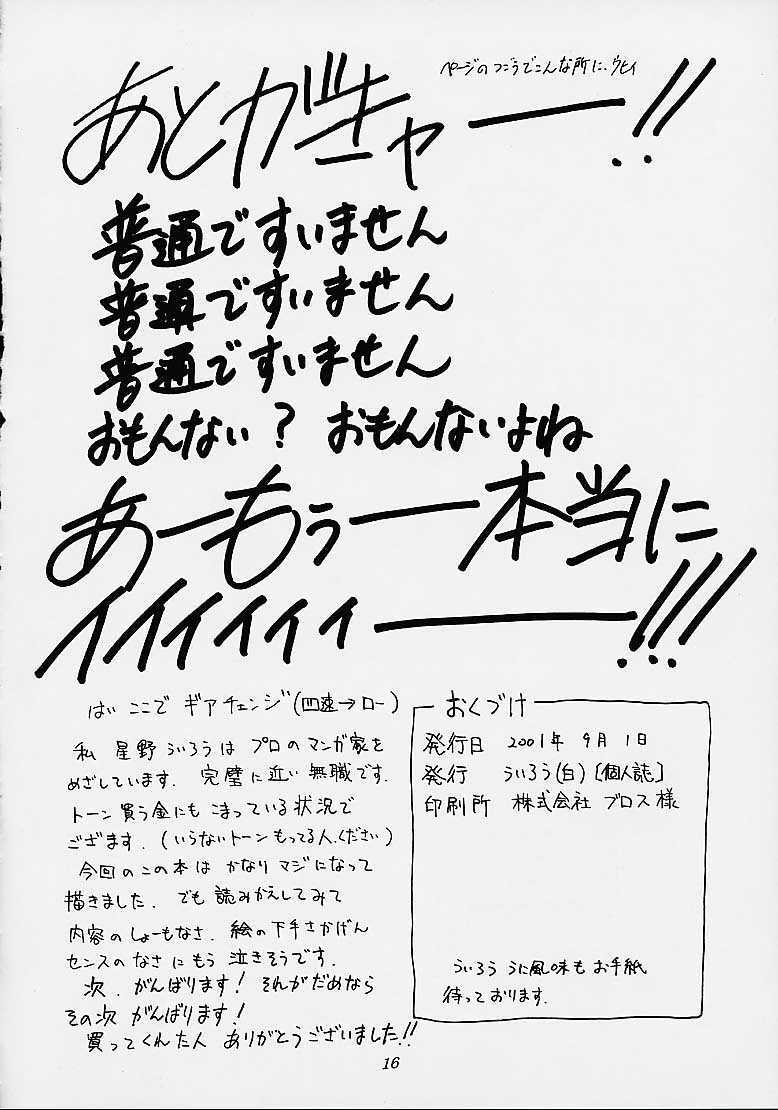 ページのつごうでこんな所に、ウヒィ
あとがキャー!!
普通ですいません
普通ですいません
普通ですいません
おもんない? おもんないよね
あーもぅー本当に
イイィィィィー!!!
はい ここで ギアチェンジ(四速→ロー)
私 星野ういろうは プロのマンガ家を
めざしています. 完璧に近い無職です.
トーン買う金にも こまっている状況で
ござます.(いらないトーンもってる人、ください)
今回のこの本は かなりマジになって
描きました. でも 読みかえしてみて
内容のしょーもなさ. 絵の下手さかげん
センスのなさにもう 泣きそうです.
次. がんばります! それがだめなら
その次 がんばります!
買ってくれた人 ありがとうございました!!
おくづけ
発行日 2001年 9月1日
発行 ういろう(白)[個人誌]
印刷所 株式会社 ブロス様
ういろう うに風味も お手紙
待っております.
16